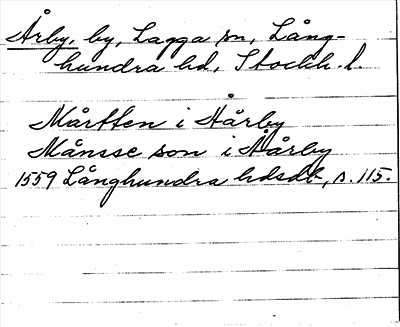 Årby, by, Lagga sn, Lång-
hundra hd, Stockh. l.
Mårtten i Åårby
Månsse son i Åårby
1559 Långhundra hdsdb, s. 115.